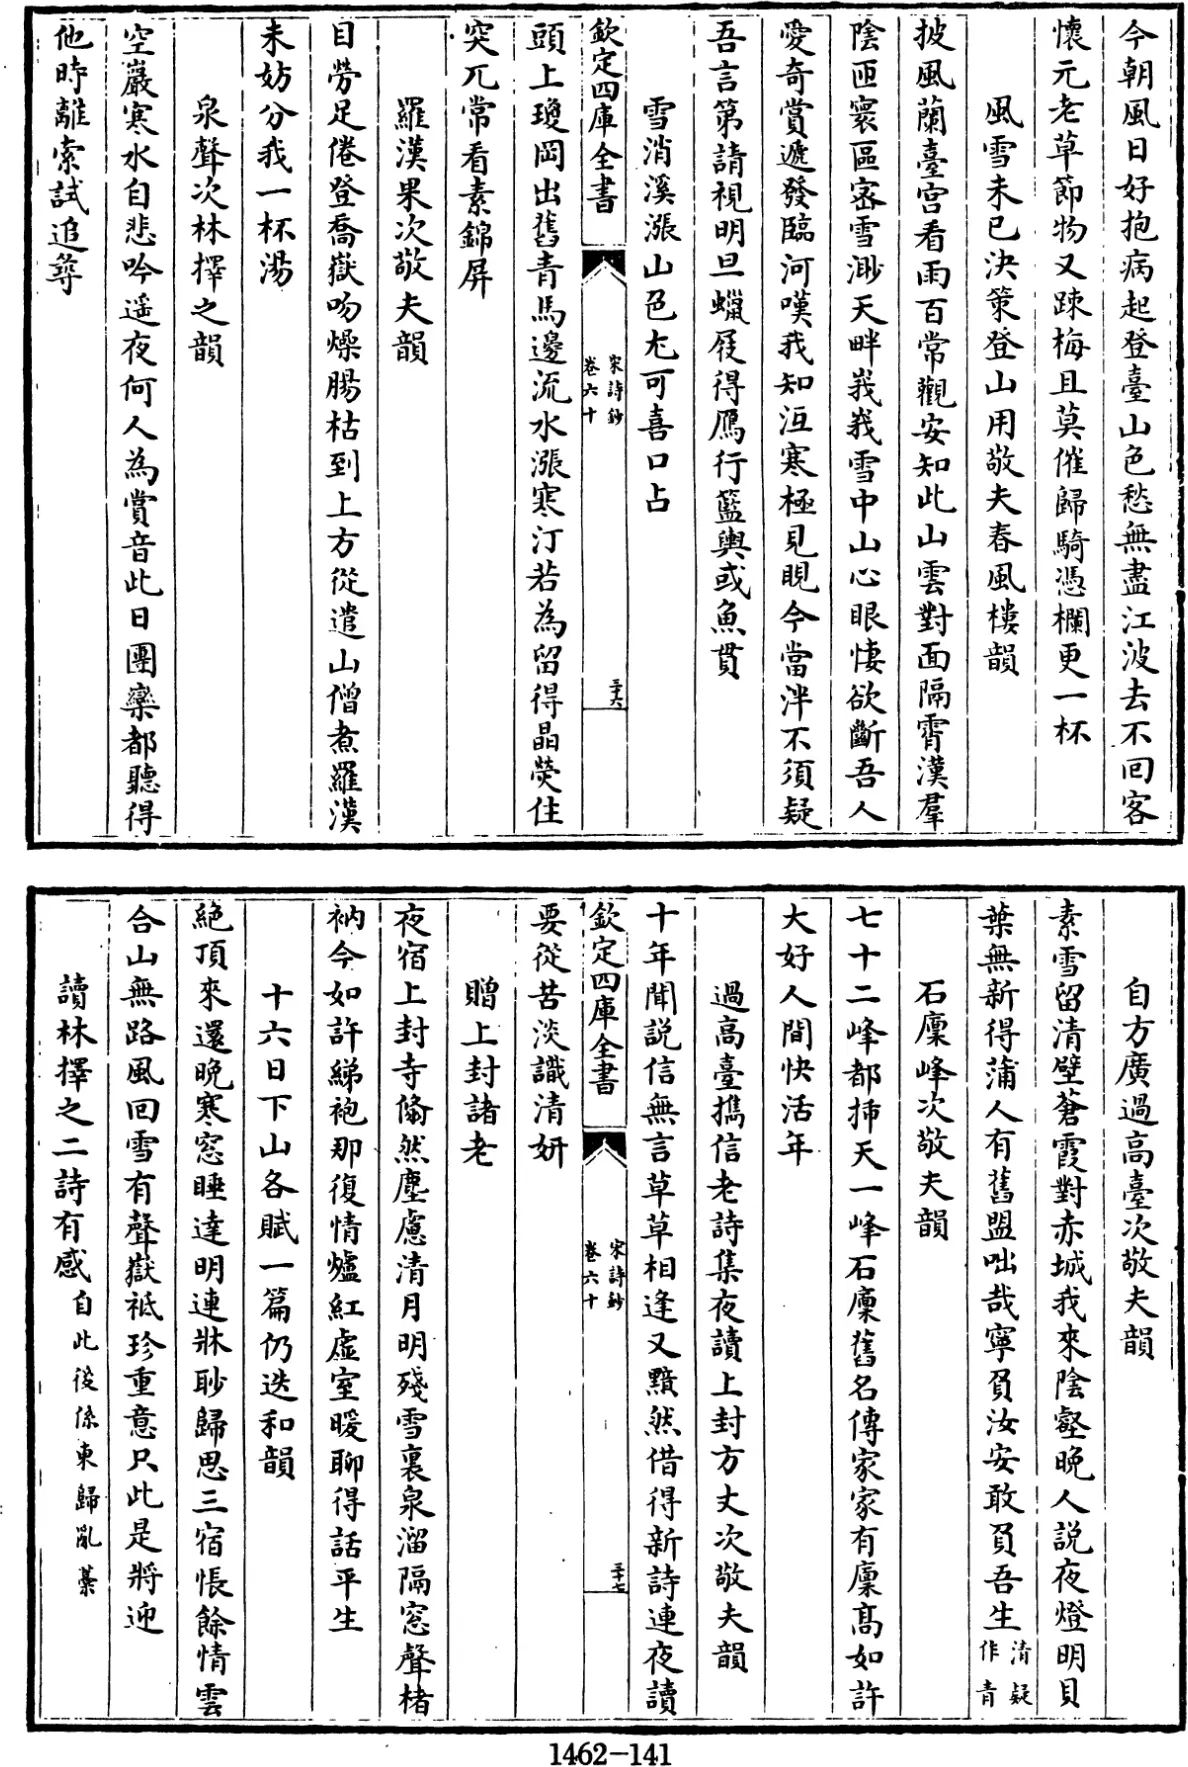 今朝風日好抱病起登臺山色愁無盡江波去不回客
懷元老草節物又踈梅且莫催歸騎憑欄更一杯
風雪未已決策登山用敬夫春風樓韻
披風蘭臺宮看雨百常觀安知此山雲對面隔霄漢羣
陰匝寰區密雪渺天畔峩峩雪中山心眼悽欲斷吾人
愛奇賞遞發臨河嘆我知沍寒極見晛今當泮不須疑
吾言第請視明旦蠟屐得鴈行籃輿或魚貫
雪消溪漲山色尢可喜口占
欽定四庫全書
宋詩鈔
卷六十
三六
頭上瓊岡出舊青馬邊流水漲寒汀若為留得晶熒住
突兀常看素錦屏
羅漢果次敬夫韻
目勞足倦登喬嶽吻燥腸枯到上方從遣山僧煮羅漢
未妨分我一杯湯
泉聲次林擇之韻
空巖寒水自悲吟遥夜何人為賞音此日團欒都聽得
他時離索試追尋
自方廣過高臺次敬夫韻
素雪留清壁蒼霞對赤城我來陰壑晚人說夜燈明貝
葉無新得蒲人有舊盟咄哉寧負汝安敢負吾生清疑作青
石廩峰次敬夫韻
七十二峰都挿天一峰石廩舊名傳家家有廩髙如許
大好人間快活年
過高臺攜信老詩集夜讀上封方丈次敬夫韻
十年聞說信無言草草相逢又黯然借得新詩連夜讀
欽定四庫全書
宋詩鈔
卷六十
三十七
要從苦淡識清妍
贈上封諸老
夜宿上封寺翛然塵慮清月明殘雪裏泉溜隔窓聲楮
衲今如許綈袍那復情爐紅虛室暖聊得話平生
十六日下山各賦一篇仍迭和韻
絕頂來還晚寒窓睡達明連牀聊歸思三宿悵餘情雲
合山無路風回雪有聲嶽祗珍重意只此是將迎
讀林擇之二詩有感自此後係東歸亂藁
1462-141